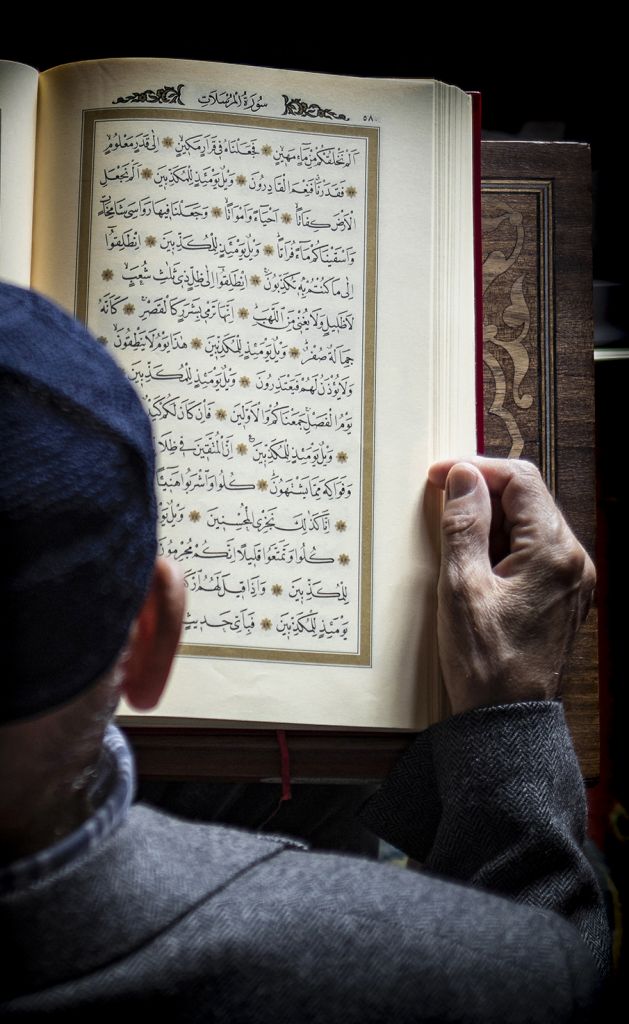 سُورَةُ الْمُرْسَلَاتِ
٥٨٠
اَلَمْ نَخْلُقْكُمْ مِنْ مَاءٍ مَهٖينٍ ۞ فَجَعَلْنَاهُ فٖى قَرَارٍ مَكٖينٍ ۞ اِلٰى قَدَرٍ مَعْلُومٍ
۞ فَقَدَرْنَا فَنِعْمَ الْقَادِرُونَ ۞ وَيْلٌ يَوْمَئِذٍ لِلْمُكَذِّبٖينَ ۞ اَلَمْ نَجْعَلِ
الْاَرْضَ كِفَاتًا ۞ اَحْيَاءً وَاَمْوَاتًا ۞ وَجَعَلْنَا فٖيهَا رَوَاسِىَ شَامِخَاتٍ
وَاَسْقَيْنَاكُمْ مَاءً فُرَاتًا ۞ وَيْلٌ يَوْمَئِذٍ لِلْمُكَذِّبٖينَ ۞ اِنْطَلِقُوا
اِلٰى مَا كُنْتُمْ بِهٖ تُكَذِّبُونَ ۞ اِنْطَلِقُوا اِلٰى ظِلٍّ ذٖى ثَلٰثِ شُعَبٍ ۞
لَا ظَلٖيلٍ وَلَا يُغْنٖى مِنَ اللَّهَبِ ۞ اِنَّهَا تَرْمٖى بِشَرَرٍ كَالْقَصْرِ ۞ كَاَنَّهُ
جِمَالَةٌ صُفْرٌ ۞ وَيْلٌ يَوْمَئِذٍ لِلْمُكَذِّبٖينَ ۞ هٰذَا يَوْمُ لَا يَنْطِقُونَ ۞
وَلَا يُؤْذَنُ لَهُمْ فَيَعْتَذِرُونَ ۞ وَيْلٌ يَوْمَئِذٍ لِلْمُكَذِّبٖينَ
يَوْمُ الْفَصْلِ جَمَعْنَاكُمْ وَالْاَوَّلٖينَ ۞ فَاِنْ كَانَ لَكُمْ
۞ وَيْلٌ يَوْمَئِذٍ لِلْمُكَذِّبٖينَ ۞ اِنَّ الْمُتَّقٖينَ فٖى
وَفَوَاكِهَ مِمَّا يَشْتَهُونَ ۞ كُلُوا وَاشْرَبُوا هَنٖيـًٔا
۞ اِنَّا كَذٰلِكَ نَجْزِى الْمُحْسِنٖينَ ۞ وَيْلٌ
۞ كُلُوا وَتَمَتَّعُوا قَلٖيلًا اِنَّكُمْ مُجْرِمُونَ
لِلْمُكَذِّبٖينَ ۞ وَاِذَا قٖيلَ لَهُمُ
يَوْمَئِذٍ لِلْمُكَذِّبٖينَ ۞ فَبِاَىِّ حَدٖيثٍ